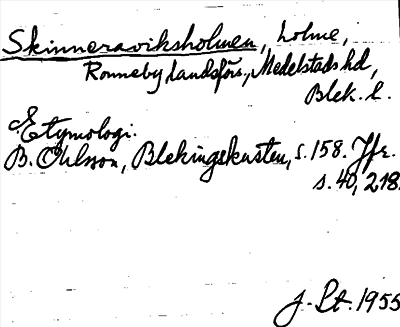 Skinneraviksholmen, holme,
Ronneby landsförs., Medelstads hd,
Blek. l.
Etymologi.
B. Ohlsson, Blekingekusten, s. 158. Jfr.
s. 40, 218.
J. Lt. 1955